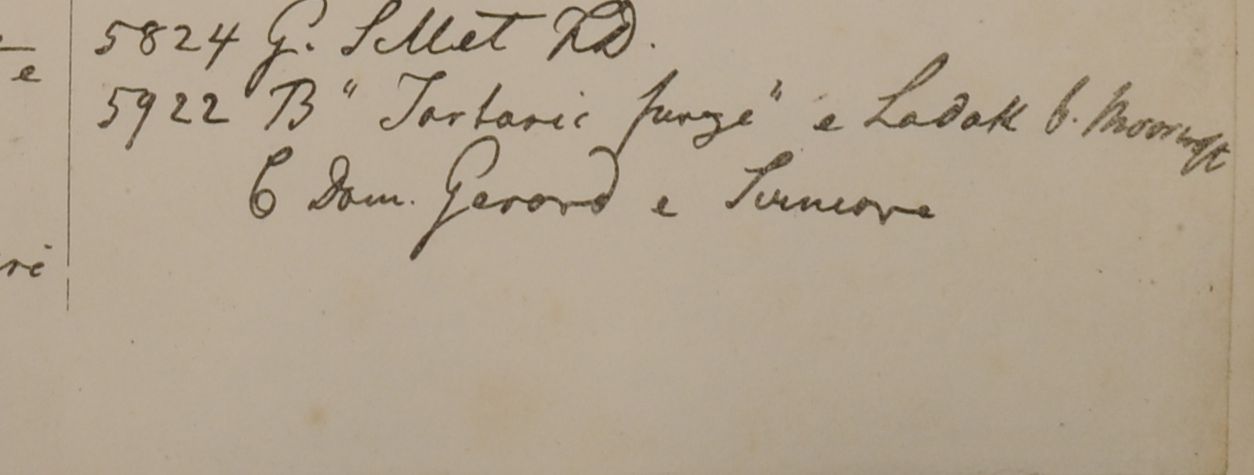 e
5824 G. Sillet FD.
5922 B " Tartaric furze " e Ladak b. Moorcroft
C Dom. Gerard e Sirmore
ri